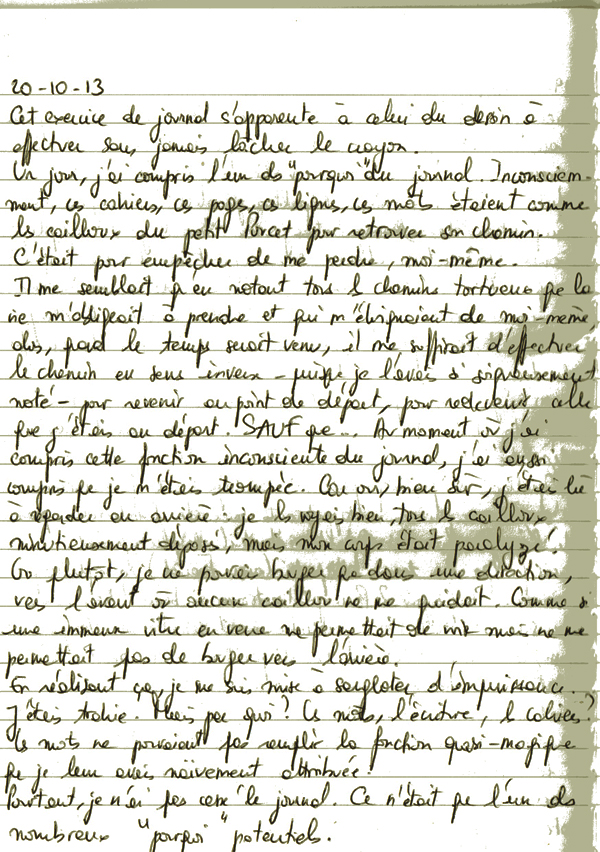 20-10-13
Cet exercice de journal s'apparente à celui du dessin à
effectuer sans jamais lâcher le crayon.
Un jour, j'ai compris l'un des "pourquoi" du journal. Inconsciem-
ment, ces cahiers, ces pages, ces lignes, ces mots étaient comme
les cailloux du petit Poucet pour retrouver son chemin.
C'était pour empêcher de me perdre, moi-même.
Il me semblait qu'en notant tous les chemins tortueux que la
vie m'obligeait à prendre et qui m'éloignaient de moi-même,
alors, quand le temps serait venu, il me suffirait d'effectuer
le chemin en sens inverse - puisque je l'avais si soigneusement
noté - pour revenir au point de départ, pour redevenir celle
que j'étais au départ. SAUF que... Au moment où j'ai
compris cette fonction inconsciente du journal, j'ai aussi
compris que je m'étais trompée. Car oui, bien sûr, j'étais là
à regarder en arrière : je les voyais bien, tous les cailloux
minutieusement déposés, mais mon corps était paralysé.
Ou plutôt, je ne pouvais bouger que dans une direction,
vers l'avant où aucun caillou ne me guidait. Comme si
une immense vitre en verre me permettait de voir mais ne me
permettait pas de bouger vers l'arrière.
En réalisant ça, je me suis mise à sangloter d'impuissance.
J'étais trahie. Mais par qui ? Les mots, l'écriture, les cahiers ?
Les mots ne pouvaient pas remplir la fonction quasi-magique
que je leur avais naïvement attribuée.
Pourtant, je n'ai pas cessé le journal. Ce n'était que l'un des
nombreux "pourquoi" potentiels.